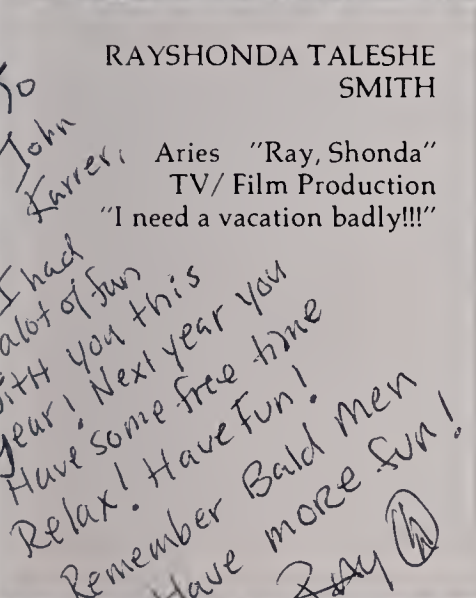 RAYSHONDA TALESHE
SMITH
Aries "Ray, Shonda"
TV/ Film Production
"I need a vacation badly!!!"
To
John
Karrer,
I had
alot of fun
with you this
year! Next year you
Have some free time
Relax! Have Fun!
Remember Bald men
Have more fun!
Ray